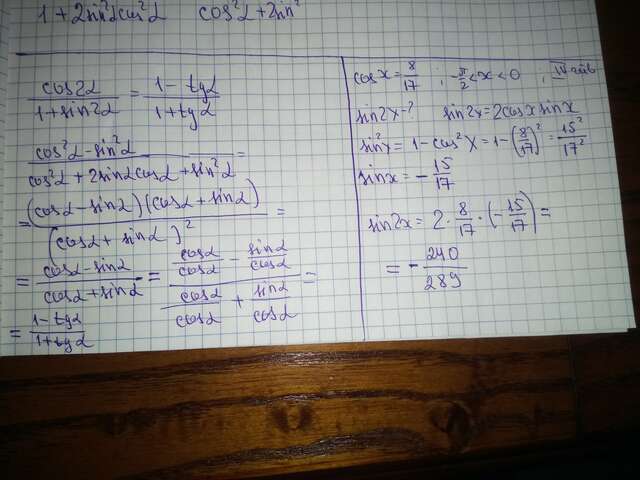 1 + 2sin²α cos²α   cos²α + 2sin²
cos2α / (1 + sin2α) = (1 - tgα) / (1 + tgα)
(cos²α - sin²α) / (cos²α + 2sinα cosα + sin²α) =
= (cosα - sinα)(cosα + sinα) / (cosα + sinα)² =
= (cosα - sinα) / (cosα + sinα) = (cosα/cosα - sinα/cosα) / (cosα/cosα + sinα/cosα) =
= (1 - tgα) / (1 + tgα)
cos x = 8/17 ; -π/2 < x < 0 ; IV
sin2x - ?   sin2x = 2cosx sinx
sin²x = 1 - cos²x = 1 - (8/17)² = 15²/17²
sinx = - 15/17
sin2x = 2 · 8/17 · (- 15/17) =
= - 240/289